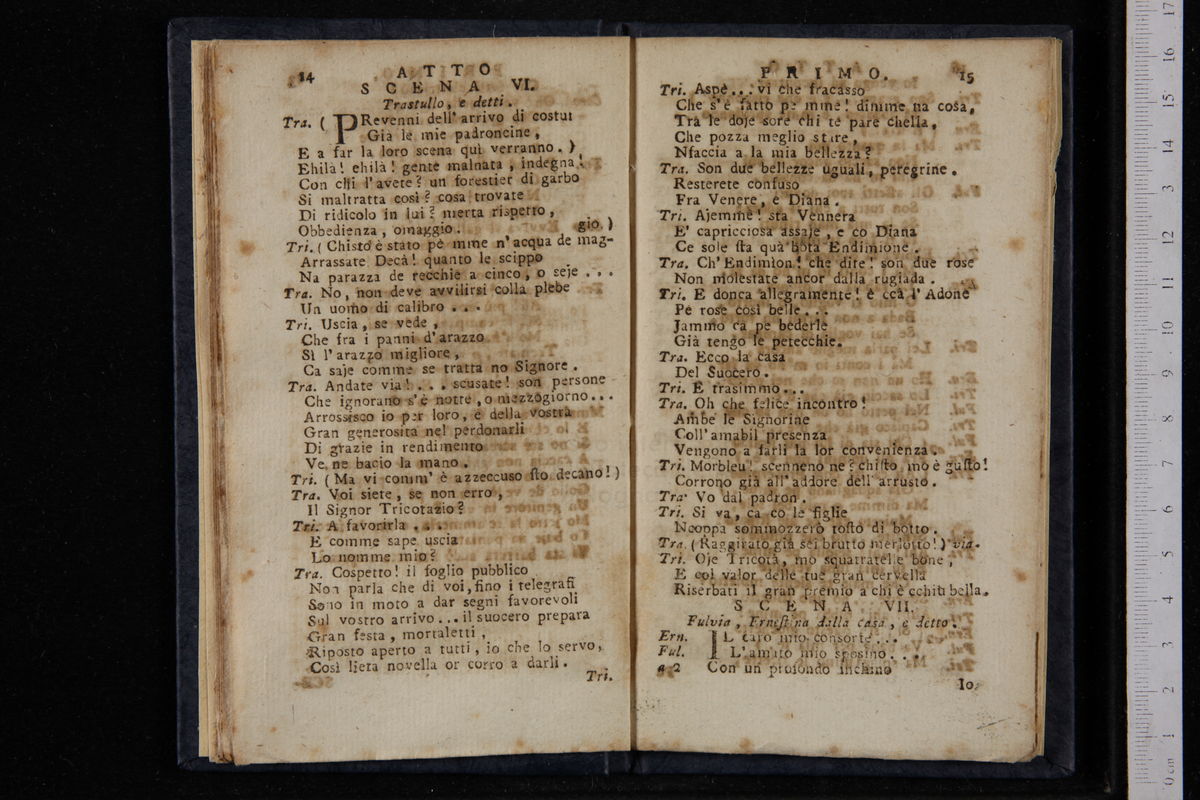 14 ATTO
SCENA VI.
Trastullo, e detti.
Tra. ( PRevenni dell'arrivo di costui
Già le mie padroncine,
E a far la loro scena quì verranno. )
Ehilà! ehilà! gente malnata, indegna!
Con chi l'avete? un forestier di garbo
Si maltratta così? cosa trovate
Di ridicolo in lui? merta rispetto,
Obbedienza, omaggio. gio. )
Tri. ( Chisto è stato pe mme n'acqua de mag-
Arrassate Decà! quanto le sceippo
Na parazza de recchie a cinco, o seje ...
Tra. No, non deve avvilirsi colla plebe
Un uomo di calibro ...
Tri. Uscia, se vede,
Che fra i panni d'arazzo
Sì l'arazzo migliore,
Ca saje comme se tratta no Signore.
Tra. Andate via! ... scusate! son persone
Che ignorano s'è notte, o mezzogiorno...
Arrossisco io per loro, e della vostra
Gran generosità nel perdonarli
Di grazie in rendimento
Ve ne bacio la mano.
Tri. ( Ma vi comm' è azzeccuso sto decano! )
Tra. Voi siete, se non erro,
Il Signor Tricotazio?
Tri. A favorirla ...
E comme sape uscia
Lo nomme mio?
Tra. Cospetto! il foglio pubblico
Non parla che di voi, fino i telegrafi
Sono in moto a dar segni favorevoli
Sul vostro arrivo... il suocero prepara
Gran festa, mortaletti,
Riposto aperto a tutti, io che lo servo,
Così lieta novella or corro a darli.
Tri.
PRIMO. 15
Tri. Aspè... vi che fracasso
Che s'è fatto pe mme! dimme na cosa,
Tra le doje sore chi te pare chella,
Che pozza meglio stare,
Nfaccia a la mia bellezza?
Tra. Son due bellezze uguali, peregrine.
Resterete confuso
Fra Venere, e Diana.
Tri. Ajemmè! sta Vennera
E' capricciosa assaje, e co Diana
Ce sole sta quà bota Endimione.
Tra. Ch'Endimion! che dite! son due rose
Non molestate ancor dalla rugiada.
Tri. E donca allegramente! è ccà l'Adone
Pe rose così belle...
Jammo ca pe bederle
Già tengo le petecchie.
Tra. Ecco la casa
Del Suocero.
Tri. E trasimmo...
Tra. Oh che felice incontro!
Ambe le Signorine
Coll'amabil presenza
Vengono a farli la lor convenienza.
Tri. Morbleu! scenneno ne? chisto mo è gusto!
Corrono già all'addore dell'arrusto.
Tra. Vo dal padron.
Tri. Si va, ca co le figlie
Ncoppa sommozzerò tosto di botto.
Tra. (Raggirato già sei brutto merlotto!) via.
Tri. Oje Tricotà, mo squatratelle bone,
E col valor delle tue gran cervella
Riserbati il gran premio a chi è cchiù bella.
SCENA VII.
Fulvia, Ernestina dalla casa, e detto.
Ern. IL caro mio consorte...
Ful. L'amato mio sposino...
a 2 Con un profondo inchino
Io